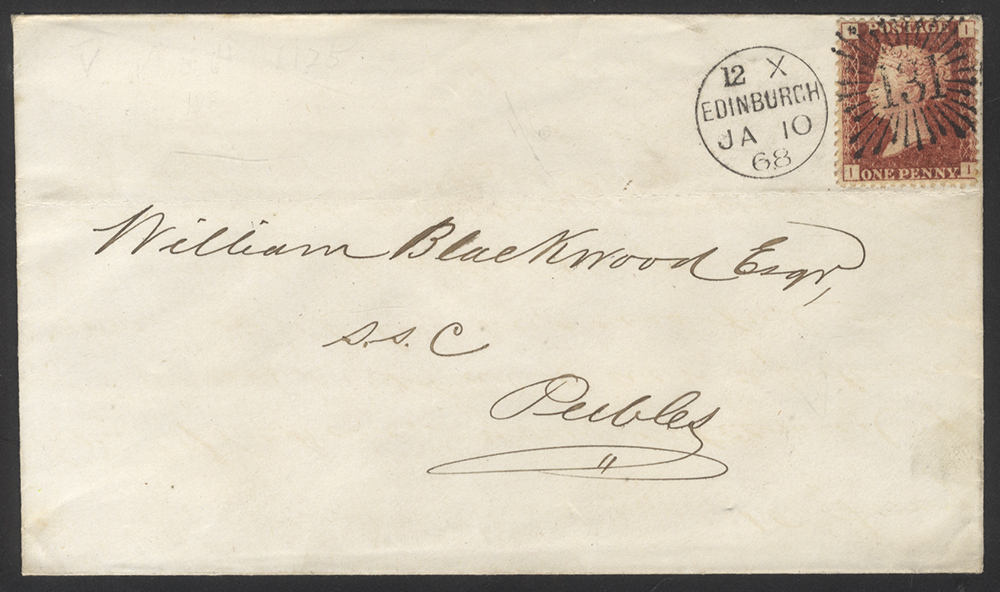 12 X
EDINBURGH
JA 10
68
I POSTAGE I
131
I ONE PENNY I
William Blackwood Esqr,
S. S. C
Peebles